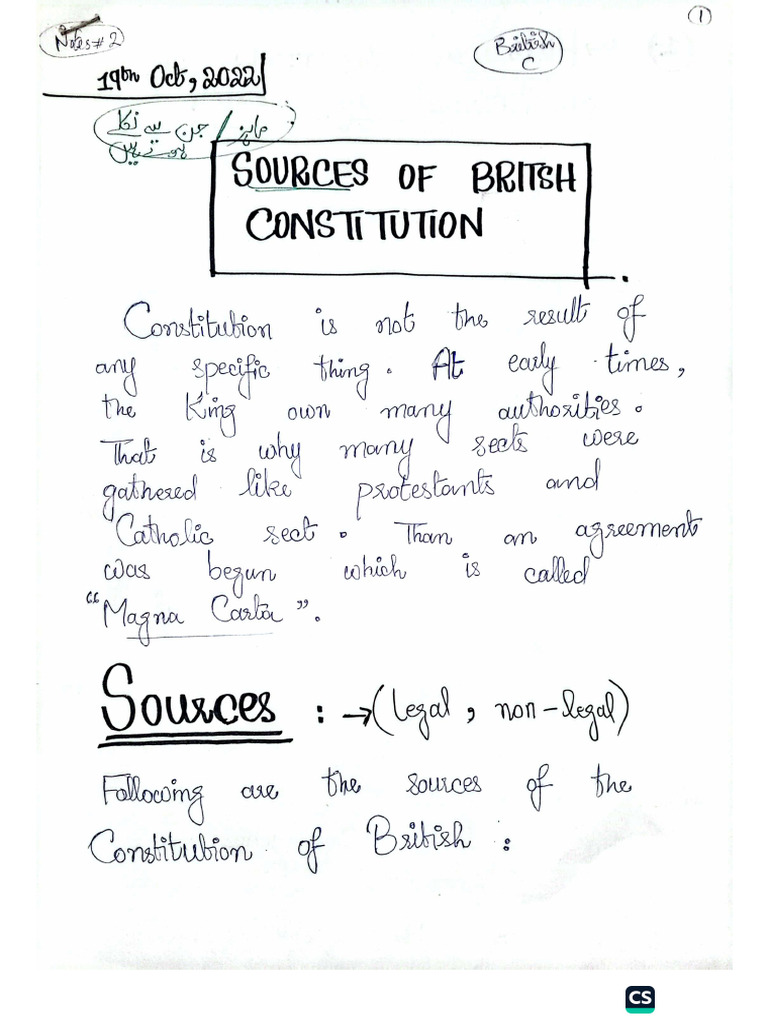 ①
Notes # 2
British
C
19th Oct, 2022
ماہز / جن سے نکلے
ہوتے ہیں
SOURCES OF BRITSH
CONSTITUTION
Constitution is not the result of
any specific thing. At early times,
the King own many authorities.
That is why many sects were
gathered like protestants and
Catholic sect. Than an agreement
was begun which is called
"Magna Carta".
Sources : → (legal, non-legal)
Following are the sources of the
Constitution of British :
CS